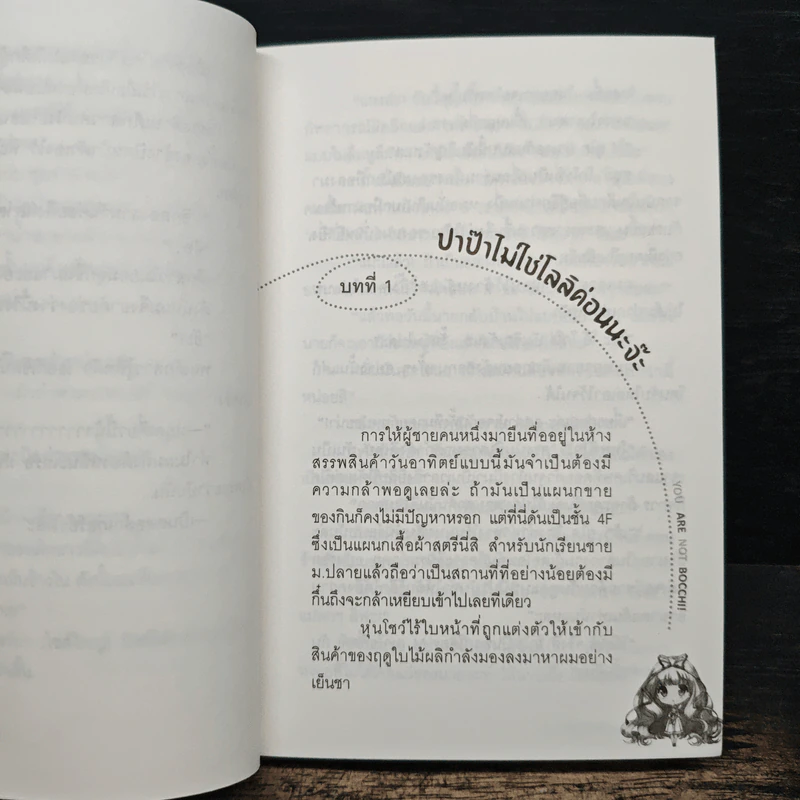 ปาป๊าไม่ใช่โลลิค่อนนะจ๊ะ
บทที่ 1
การให้ผู้ชายคนหนึ่งมายืนที่ออยู่ในห้าง
สรรพสินค้าวันอาทิตย์แบบนี้มันจำเป็นต้องมี
ความกล้าพอดูเลยล่ะ ถ้ามันเป็นแผนกขาย
ของกินก็คงไม่มีปัญหาหรอก แต่ที่นี่ดันเป็นชั้น 4F
ซึ่งเป็นแผนกเสื้อผ้าสตรีนี่สิ สำหรับนักเรียนชาย
ม.ปลายแล้วถือว่าเป็นสถานที่ที่อย่างน้อยต้องมี
กึ๋นถึงจะกล้าเหยียบเข้าไปเลยทีเดียว
หุ่นโชว์ไร้ใบหน้าที่ถูกแต่งตัวให้เข้ากับ
สินค้าของฤดูใบไม้ผลิกำลังมองลงมาหาผมอย่าง
เย็นชา
YOU ARE NOT BOCCHI!